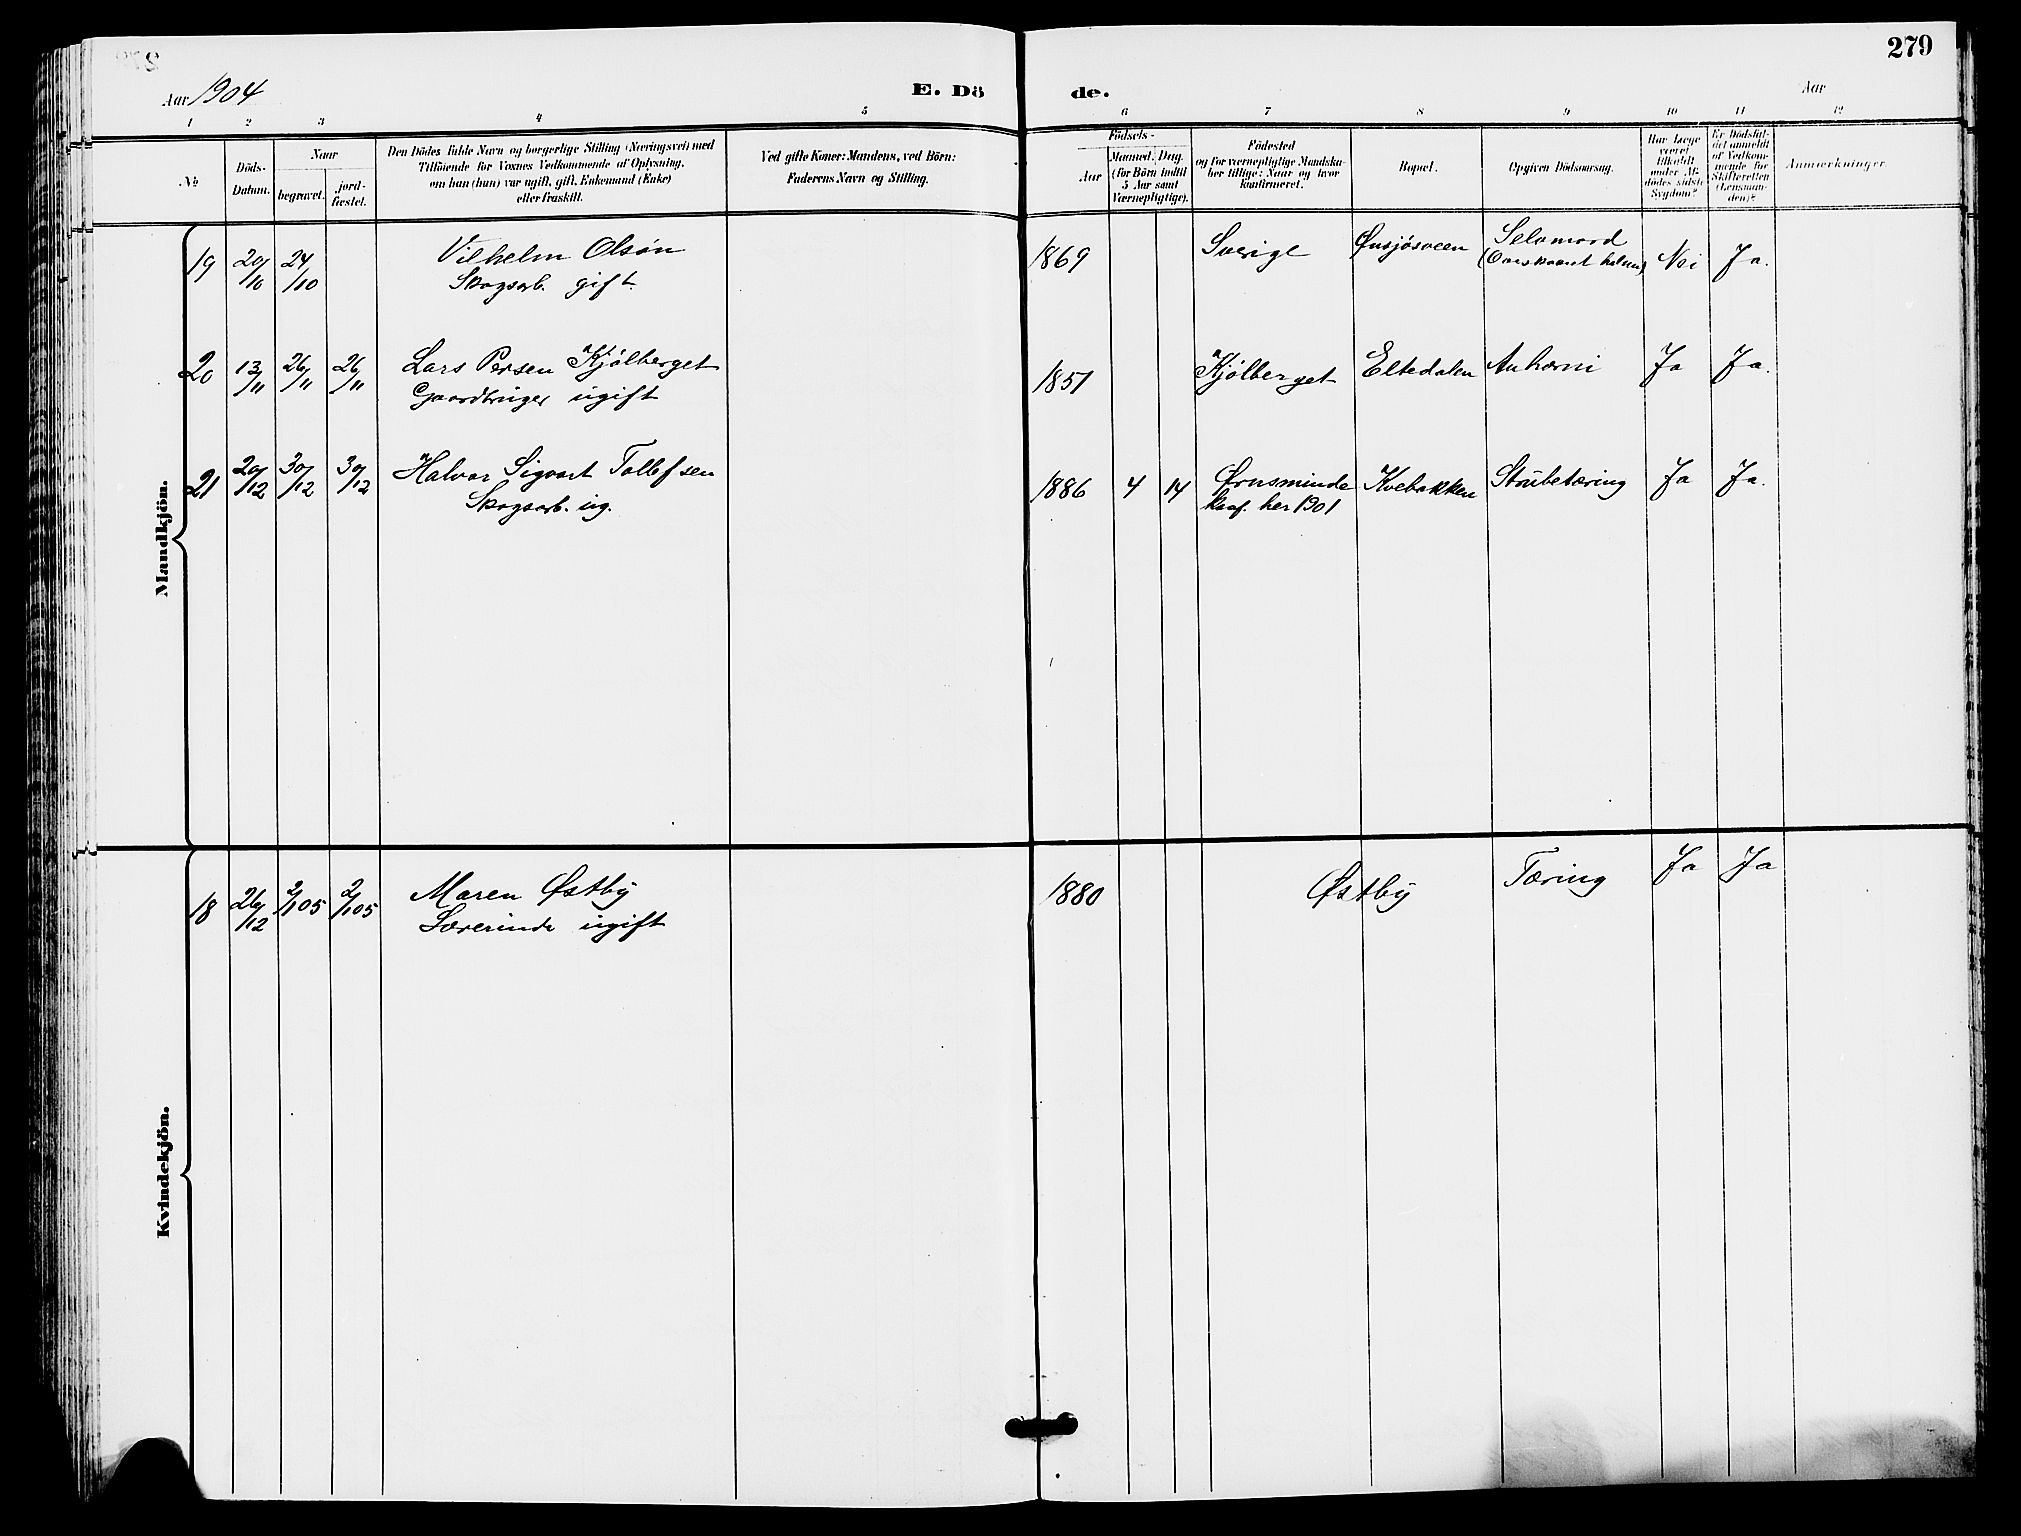 279
Aar 1904
E. Dö
de.
Aar
1 2 3 4 5 6 7 8 9 10 11 12
No
Döds-
Datum.
Naar
begravet.
jord-
fæstet.
Den Dödes fulde Navn og borgerlige Stilling (Næringsvei) med
Tilföiende for Voxnes Vedkommende af Oplysning,
om han (hun) var ugift, gift, Enkemand (Enke)
eller fraskilt.
Ved gifte Koner: Mandens, ved Börn:
Faderens Navn og Stilling.
Födsels-
Aar
Maaned. Dag.
(for Börn indtil
5 Aar samt
Værnepligtige).
Födested
og for værnepligtige Mandska-
ber tillige: Naar og hvor
konfirmeret.
Bopæl.
Opgiven Dödsaarsag.
Har Læge
været
tilkaldt
under Af-
dödes sidste
Sygdom?
Er Dödsfal-
det anmeldt
af Vedkom-
mende for
Skifteretten
(Lensman-
den)?
Anmærkninger.
Mandkjön.
19 20/10 24/10 Vilhelm Olsön 1869 Sverige Selvmord Nei Ja.
Skogsarb. gift.
20 13/11 26/11 26/11 Lars Persen Kjølberget 1851 Kjølberget Eltedalen Ja Ja.
Gaardbruger ugift
21 20/12 30/12 30/12 Halvor Sigvart Tollefsen 1886 4 14 Ørnsminde Kvebakken Strubetæring Ja Ja.
Skogsarb. ug. konf. her 1901
Kvindekjön.
18 26/12 2/1 05 2/1 05 Maren Østby 1880 Østby Tæring Ja Ja
Lærerinde ugift